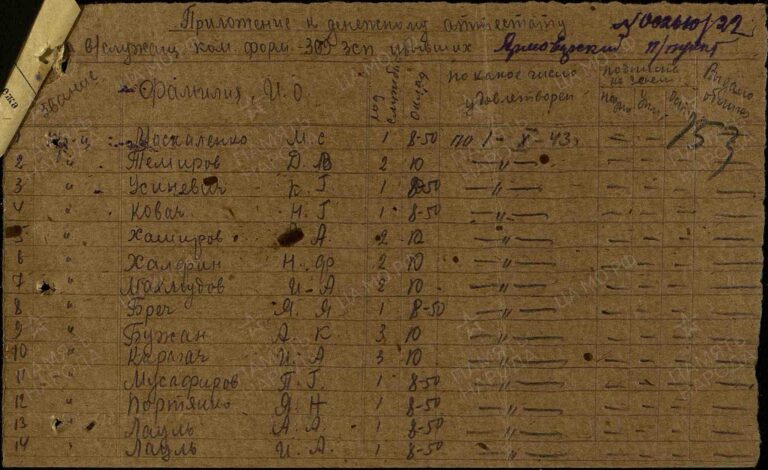 Приложение к денежному аттестату
в/служащ. ком. форм. зсп убывших Ярмовецкий п/пункт
Звание Фамилия И.О. год службы оклад по какое число удовлетворен подписка на заем Выдано
1 Москаленко М. С 1 8-50 по 1-X-43г — — — —
2 " Темиров Д. В 2 10 —"— — — — —
3 " Усиневич К. Г 1 8-50 —"— — — — —
4 " Ковач Н. Г 1 8-50 —"— — — — —
5 " Хамиров А. 2 10 —"— — — — —
6 " Халфин Н. Ф 2 10 —"— — — — —
7 " Махмудов И-А 2 10 —"— — — — —
8 " Бреч Я. Я 1 8-50 —"— — — — —
9 " Бужан А. К 3 10 —"— — — — —
10 " Каргач И. А 3 10 —"— — — — —
11 " Мусафиров П. Г. 1 8-50 —"— — — — —
12 " Портянко Я Н 1 8-50 —"— — — — —
13 " Лауль А. А. 1 8-50 —"— — — — —
14 " Лауль И. А. 1 8-50 —"— — — — —
153